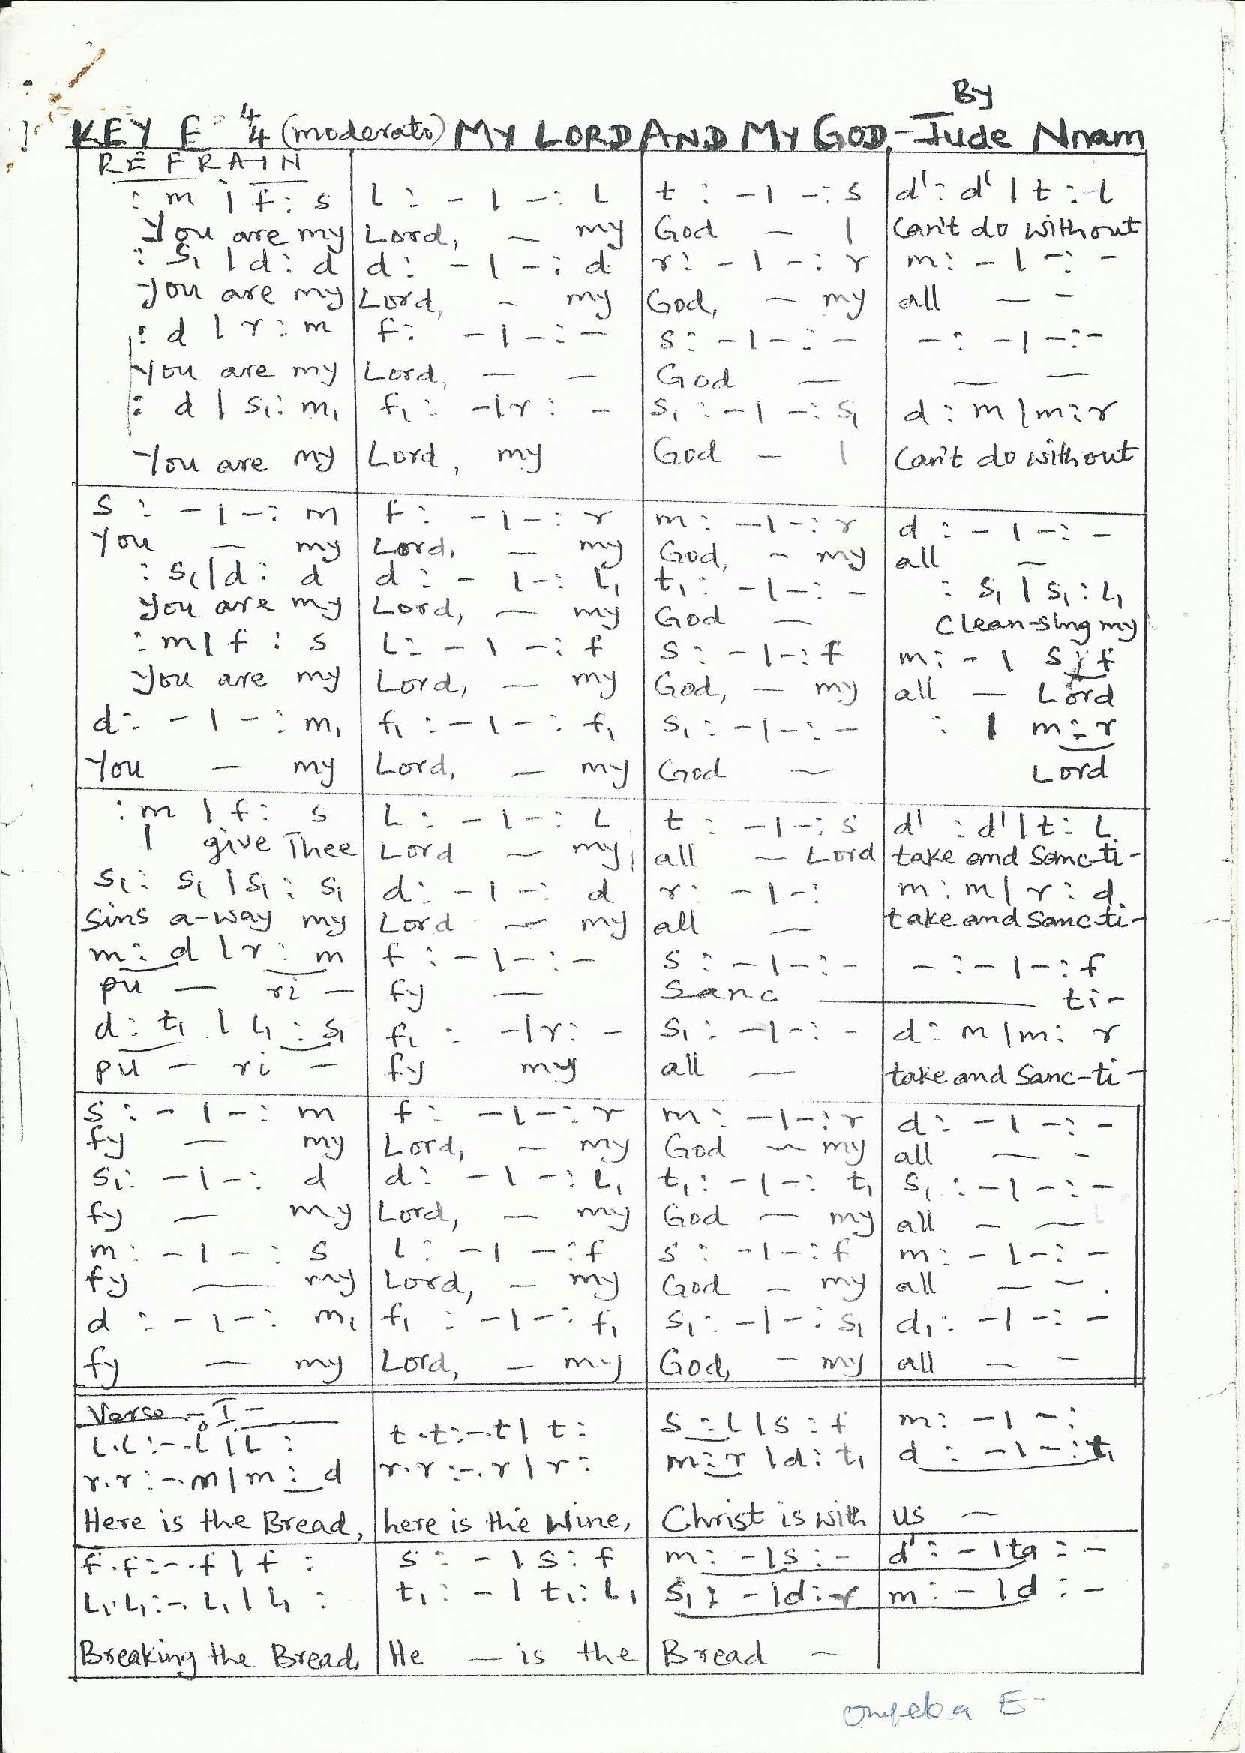 By
KEY E 4/4 (moderato) MY LORD AND MY GOD - Jude Nnam
REFRAIN
: m | f : s | l : - | - : l | t : - | - : s | d' : d' | t : l
You are my | Lord, — my | God — I | Can't do without
: s₁ | d : d | d : - | - : d | r : - | - : r | m : - | - : -
You are my | Lord, - my | God, — my | all — -
: d | r : m | f : - | - : - | s : - | - : - | - : - | - : -
You are my | Lord, — — | God — | — —
: d | s₁ : m₁ | f₁ : - | r : - | s₁ : - | - : s₁ | d : m | m : r
You are my | Lord, my | God - I | Can't do without
s : - | - : m | f : - | - : r | m : - | - : r | d : - | - : -
You — my | Lord, — my | God, - my | all —
: s₁ | d : d | d : - | - : l₁ | t₁ : - | - : - | : s₁ | s₁ : l₁
You are my | Lord, — my | God — | Clean-sing my
: m | f : s | l : - | - : f | s : - | - : f | m : - | s : f
You are my | Lord, — my | God, — my | all — Lord
d : - | - : m₁ | f₁ : - | - : f₁ | s₁ : - | - : - | : | m : r
You — my | Lord, — my | God — | Lord
: m | f : s | l : - | - : l | t : - | - : s | d' : d' | t : l
I give Thee | Lord — my | all — Lord | take and Sanc-ti-
s₁ : s₁ | s₁ : s₁ | d : - | - : d | r : - | - : | m : m | r : d
Sins a-way my | Lord — my | all — | take and Sanc-ti-
m : d | r : m | f : - | - : - | s : - | - : - | - : - | - : f
pu — ri — | fy — | Sanc ——— ti-
d : t₁ | l₁ : s₁ | f₁ : - | r : - | s₁ : - | - : - | d : m | m : r
pu — ri — | fy my | all — | take and Sanc-ti-
s : - | - : m | f : - | - : r | m : - | - : r | d : - | - : -
fy — my | Lord, — my | God — my | all — -
s₁ : - | - : d | d : - | - : l₁ | t₁ : - | - : t₁ | s₁ : - | - : -
fy — my | Lord, — my | God — my | all - —
m : - | - : s | l : - | - : f | s : - | - : f | m : - | - : -
fy — my | Lord, — my | God — my | all — -
d : - | - : m₁ | f₁ : - | - : f₁ | s₁ : - | - : s₁ | d₁ : - | - : -
fy — my | Lord, — my | God, - my | all — -
Verse - I -
l . l : - . l | l : | t . t : - . t | t : | s : l | s : f | m : - | - :
r . r : - . m | m : d | r . r : - . r | r : | m : r | d : t₁ | d : - | - : t₁
Here is the Bread, | here is the Wine, | Christ is with | us —
f . f : - . f | f : | s : - | s : f | m : - | s : - | d' : - | ta : -
l₁ . l₁ : - . l₁ | l₁ : | t₁ : - | t₁ : l₁ | s₁ : - | d : r | m : - | d : -
Breaking the Bread, | He — is the | Bread —